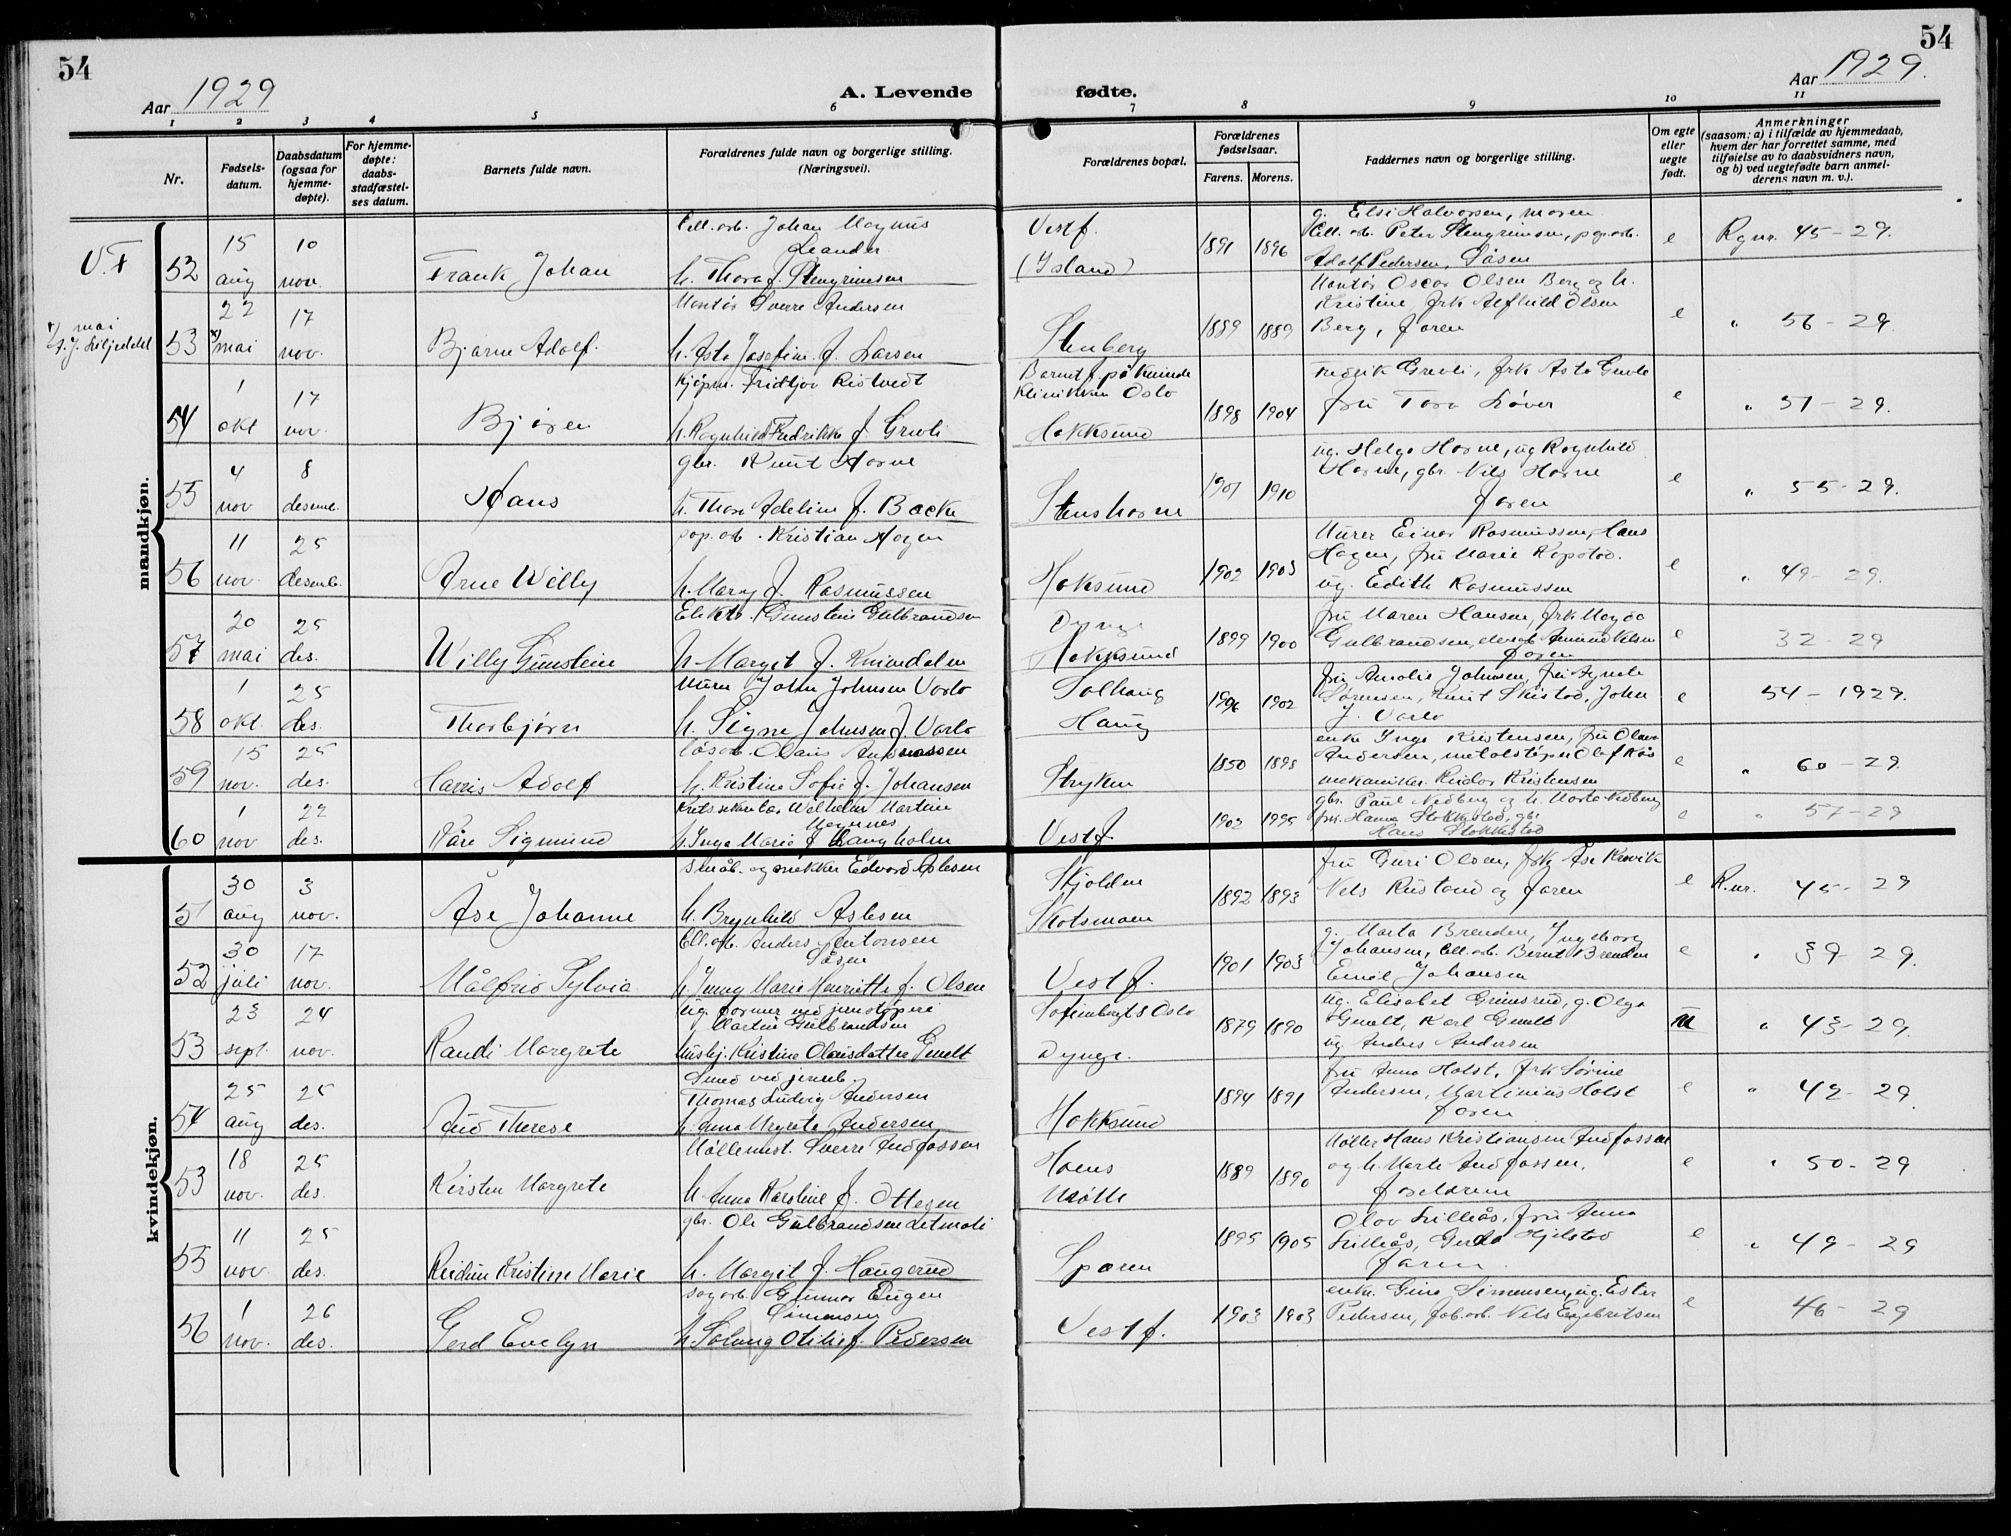 54
54
Aar 1929
A. Levende
fødte.
Aar 1929.
1 2 3 4 5 6 7 8 9 10 11
Nr.
Fødsels-
datum.
Daabsdatum
(ogsaa for
hjemme-
døpte).
For hjemme-
døpte:
daabs-
stadfæstel-
ses datum.
Barnets fulde navn.
Forældrenes fulde navn og borgerlige stilling.
(Næringsvei).
Forældrenes bopæl.
Forældrenes
fødselsaar.
Farens. Morens.
Faddernes navn og borgerlige stilling.
Om egte
eller
uegte
født.
Anmerkninger
(saasom: a) i tilfælde av hjemmedaab,
hvem der har forrettet samme, med
tilføielse av to daabsvidners navn,
og b) ved uegtefødte barn anmel-
derens navn m. v.).
mandkjøn.
V.F
52
15 aug
10 nov.
Frank Johan
Cell. arb. Johan Magnus
Leander
h. Thora f. Stengrimsen
Vestf.
(Island)
1891 1896
g. Elsi Halvorsen, moren
Cell. arb. Peter Stengrimsen, pap. arb.
Adolf Pedersen, Såsen
e
R.gnr. 45-29.
mai
53
22 mai
17 nov.
Bjarne Adolf
Montør Sverre Andersen
h. Asta Josefine f. Larsen
Stenberg
1889 1889
Montør Oscar Olsen Berg og h.
Kristine, frk Alfhild Olsen
Berg, faren
e
" 56-29.
54
1 okt
17 nov.
Bjørn
Kjøpm. Fridtjov Ristvedt
h. Ragnhild Fredrikke f. Grevli
Barnet f. på Kvinde
Klinikken Oslo
Hokksund
1898 1904
Fredrik Grevli, frk Asta Grevle
fru Tora Løver
e
" 51-29.
55
4 nov
8 desemb.
Hans
gbr. Knut Horne
h. Thora Adeline f. Backe
Stenshorne
1901 1910
ug. Helge Horne, ug Ragnhild
Horne, gbr. Nils Horne
faren
e
" 55-29.
56
11 nov.
25 desemb.
Arne Willy
pap. arb. Kristian Hagen
h. Mary f. Rasmussen
Hoksund
1902 1903
Murer Einar Rasmussen, Hans
Hagen, fru Marie Kopstad.
ug. Edith Rasmussen
e
" 49-29.
57
20 mai
25 des.
Willy Gunstein
Elektr. Gunstein Gulbrandsen
h. Margit f. Knivedalen
Dynge
Hokksund
1899 1900
fru Maren Hansen, frk Magda
Gulbrandsen,
faren
e
32-29
58
1 okt.
25 des.
Thorbjørn
Murer John Johnsen Varlo
h. Signe Johnsen f. Varlo
Solhaug
Haug
1902
fru Amalie Johnsen, fru Agnete
Sørensen, Knut Skistad, John
J. Varlo
e
54-1929.
59
15 nov.
25 des.
Harris Adolf
løsarb. Olaus Andreassen
h. Kristine Sofie f. Johansen
Stryken
1850 1893
enke Inga Kristensen, fru Olava
Andersen, metalstøper Olaf Kås
mekaniker Reidar Kristensen
e
" 60-29
60
1 nov
22 des.
Kåre Sigmund
Kretssekretær Wilhelm Martin
Magnnes
h. Inga Marie f. Langholm
Vestf.
1902 1905
gbr. Paul Nedberg og h. Marta Nedberg
fru. Hanna Stokkstad, gbr.
Hans Stokkstad
e
" 57-29
kvindekjøn.
51
30 aug
3 nov.
Åse Johanne
småb. og snekker Edvard Aslesen
h. Brynhild Aslesen
Skjolden
Skotsmoen
1892 1893
fru Guri Olsen, frk Åse Ravik
Nels Rustand og faren
e
R.nr. 45-29
52
30 juli
17 nov.
Målfrid Sylvia
Cell. arb. Anders Antonsen
Såsen
h. Jenny Marie Henriette f. Olsen
Vestf.
1901 1903
g. Marta Brenden, Ingeborg
Johansen, cell. arb. Bernt Brenden
Emil Johansen
e
" 39-29.
53
23 sept.
24 nov.
Randi Margrete
ug. former ved jernstøperi
Martin Gulbrandsen
hushj. Kristine Olausdatter Gunelt
Sofienberggt 8 Oslo
Dynge.
1879 1890
ug. Elisabet Grimsrud, g. Olga
Gunelt, Karl Gunelt
ug Anders Andersen
u
" 43-29.
54
25 aug
25 des.
Aud Therese
Smed ved jernb.
Thomas Ludvig Andersen
h. Anna Mgrete Andersen
Hokksund
1894 1891
fru Anna Holst, frk Sørine
Andersen, Martinius Holst
faren
e
" 42-29.
53
18 nov.
25 des.
Kirsten Margrete
Møllemest. Sverre Andfossen
h. Anna Karoline f. Ottesen
Hoens
Mølle
1889 1890
Møller Hans Kristiansen Andfossen
og h. Marte Andfossen.
foreldrene
e
" 50-29
55
11 nov.
25 des.
Reidun Kristine Marie
gbr. Ole Gulbrandsen Letmoli
h. Margit f. Haugerud
Sparen
1895 1905
Olav Lilleås, fru Anna
Lilleås, Gerda Hjelstad
faren.
e
" 49-29
56
1 nov.
26 des.
Gerd Evelyn
sagarb. Gunnar Eugen
Simensen
h. Solveig Otilie f. Pedersen
Vestf.
1903 1903
enke. Gina Simensen, ug. Ester
Pedersen, fab. arb. Nils Engebretsen
e
46-29